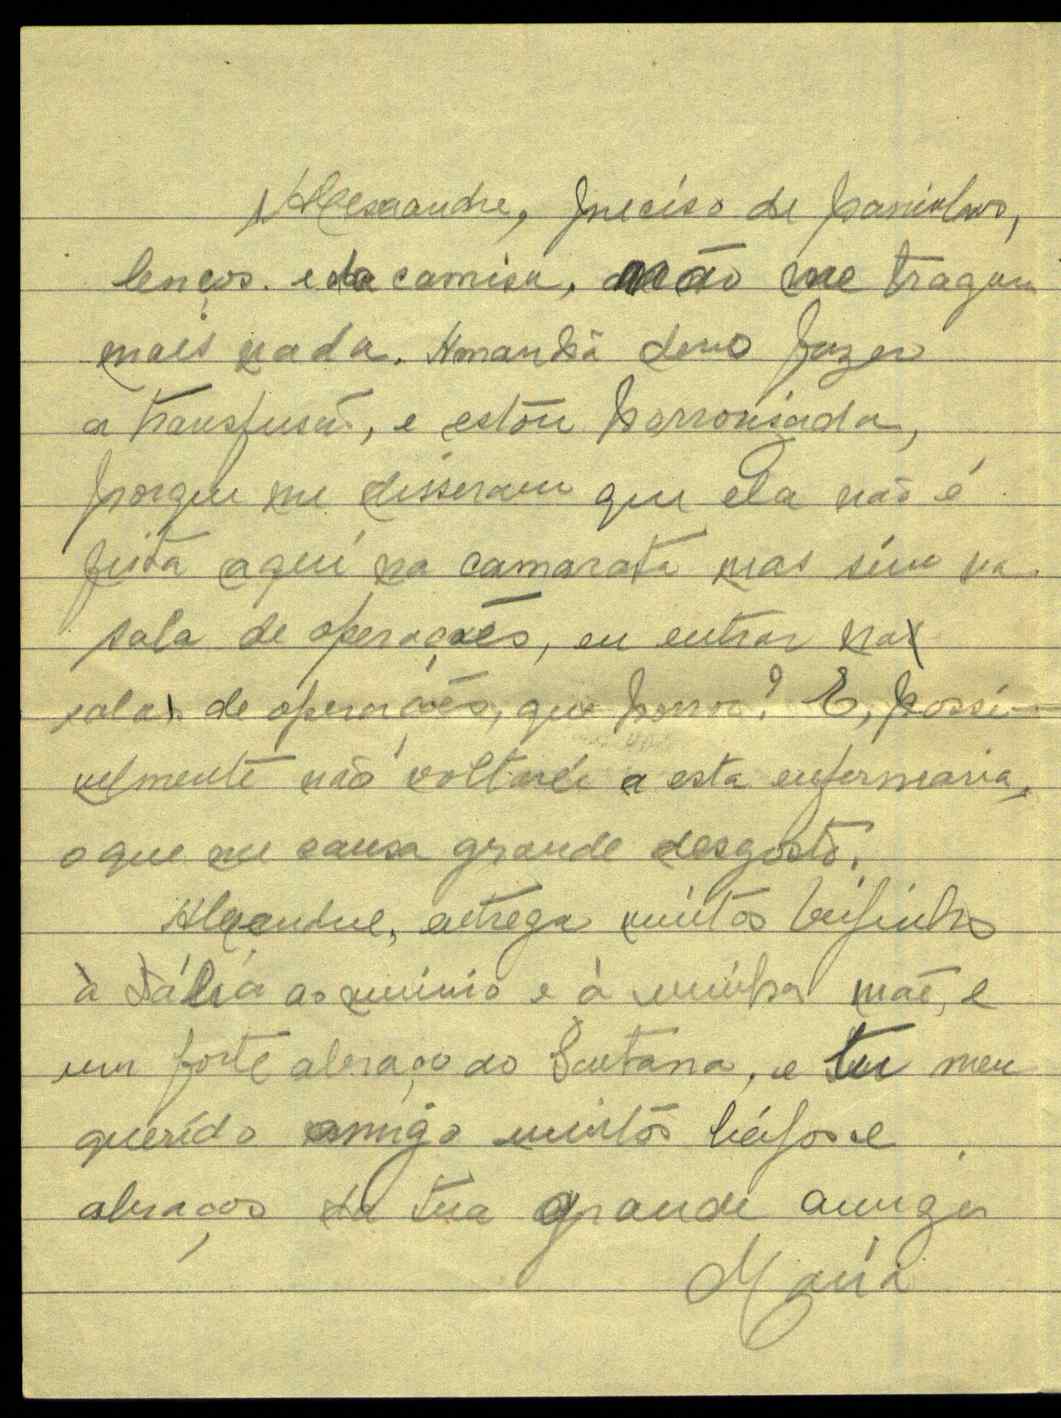 Alexandre, preciso de paninhos,
lenços. e da camisa, não me tragam
mais nada. Amanhã devo fazer
a transfusão, e estou horrorisada,
porque me disseram que ela não é
feita aqui na camarata mas sim na
sala de operações, eu entrar na
sala de operações, que horror! E, possi-
velmente não voltarei a esta enfermaria,
o que me causa grande desgosto.
Alexandre, entrega muitos beijinhos
à Dália ao menino e à minha mãe, e
um forte abraço ao Santana, e tu meu
querido amigo muitos beijos e
abraços da tua grande amiga
Maria